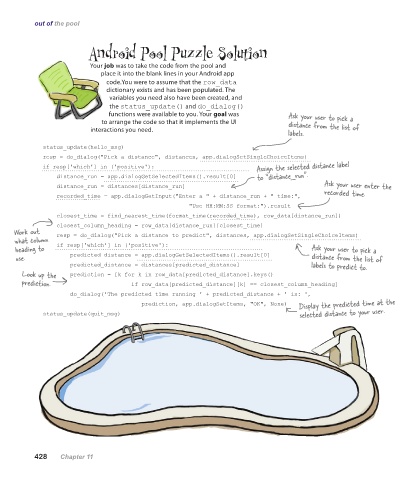 out of the pool
Android Pool Puzzle Solution
Your job was to take the code from the pool and
place it into the blank lines in your Android app
code. You were to assume that the row_data
dictionary exists and has been populated. The
variables you need also have been created, and
the status_update() and do_dialog()
functions were available to you. Your goal was
to arrange the code so that it implements the UI
interactions you need.
Ask your user to pick a
distance from the list of
labels.
status_update(hello_msg)
resp = do_dialog("Pick a distance", distances, app.dialogSetSingleChoiceItems)
if resp['which'] in ('positive'):
Assign the selected distance label
to "distance_run".
distance_run = app.dialogGetSelectedItems().result[0]
distance_run = distances[distance_run]
Ask your user enter the
recorded time
recorded_time = app.dialogGetInput("Enter a " + distance_run + " time:",
"Use HH:MM:SS format:").result
closest_time = find_nearest_time(format_time(recorded_time), row_data[distance_run])
closest_column_heading = row_data[distance_run][closest_time]
Work out
what column
heading to
use.
resp = do_dialog("Pick a distance to predict", distances, app.dialogSetSingleChoiceItems)
if resp['which'] in ('positive'):
Ask your user to pick a
distance from the list of
labels to predict to.
predicted_distance = app.dialogGetSelectedItems().result[0]
predicted_distance = distances[predicted_distance]
Look up the
prediction.
prediction = [k for k in row_data[predicted_distance].keys()
if row_data[predicted_distance][k] == closest_column_heading]
do_dialog('The predicted time running ' + predicted_distance + ' is: ',
prediction, app.dialogSetItems, "OK", None)
Display the predicted time at the
selected distance to your user.
status_update(quit_msg)
428 Chapter 11